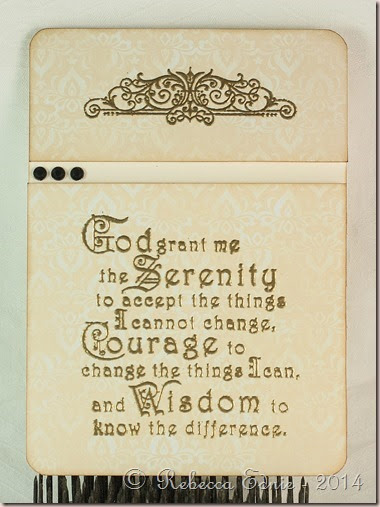 God grant me
the Serenity
to accept the things
I cannot change,
Courage to
change the things I can,
and Wisdom to
know the difference.
© Rebecca - 2014